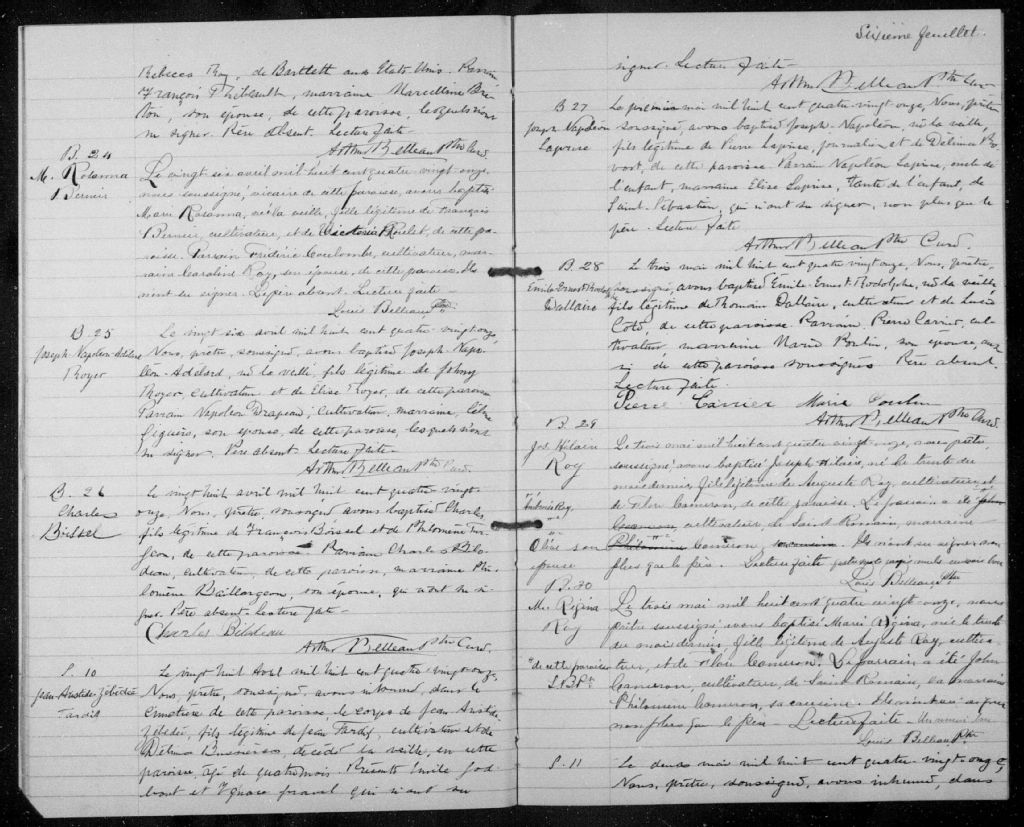 Rebecca Roy, de Bartlett aux Etats Unis. Parrain
François Thibeault, marraine Marcelline Bre-
ton, son épouse, de cette paroisse, lesquels n'ont
su signer. Père absent. Lecture faite
Arthur Belleau Ptre Curé.
B. 24
M. Rosanna
Bernier
Le vingt six avril mil huit cent quatre-vingt-onze
nous soussigné, vicaire de cette paroisse, avons baptisé
Marie Rosanna, née la veille, fille légitime de François
Bernier, cultivateur, et de Victoria Roulet, de cette pa-
roisse. Parrain Frédéric Coulombe, cultivateur, mar-
raine Caroline Roy, son épouse, de cette paroisse. Ils
n'ont su signer. Le père absent. Lecture faite
Louis Belleau Ptre
B. 25
Joseph-Napoléon-Adélard
Royer
Le vingt six avril mil huit cent quatre-vingt onze,
Nous, prêtre, soussigné, avons baptisé Joseph-Napo-
léon-Adélard, né la veille, fils légitime de Johnny
Royer, cultivateur et de Elise Royer, de cette paroisse
Parrain Napoléon Drapeau, cultivateur, marraine,
son épouse, de cette paroisse, lesquels n'ont
su signer. Père absent. Lecture faite
Arthur Belleau Ptre Curé
B. 26
Charles
Bissel
Le vingt huit avril mil huit cent quatre vingt-
onze, Nous, prêtre, soussigné avons baptisé Charles,
fils légitime de François Bissel et de Philomène Tur-
geon, de cette paroisse. Parrain Charles Bilo-
deau, cultivateur, de cette paroisse, marraine Phi-
lomène Baillargeon, son épouse, qui a dit ne si-
gner. Père absent. Lecture faite
Charles Bilodeau
Arthur Belleau Ptre Curé.
S. 10
Jean-Aristide-Zébédée
Tardif
Le vingt huit Avril mil huit cent quatre vingt-onze,
Nous, prêtre, soussigné, avons inhumé, dans le
cimetière de cette paroisse, le corps de Jean Aristide
Zébédée, fils légitime de Jean Tardif, cultivateur et de
Délima, décédé la veille, en cette
paroisse, âgé de quatre mois. Présents Emile God-
bout et Ignace Gravel qui n'ont su
Sixième feuillet.
signer. Lecture faite
Arthur Belleau Ptre Curé
B 27
Joseph Napoléon
Laprise
Le premier mai mil huit cent quatre vingt onze, Nous, prêtre
soussigné, avons baptisé Joseph-Napoléon, né la veille,
fils légitime de Pierre Laprise, journalier et de Délima Pro-
vost, de cette paroisse. Parrain Napoléon Laprise, oncle de
l'enfant, marraine Elise Laprise, tante de l'enfant, de
Saint-Sébastien, qui n'ont su signer, non plus que le
père. Lecture faite
Arthur Belleau Ptre Curé.
B. 28
Émile Ernest Rodolphe
Dallaire
Le trois mai mil huit cent quatre vingt onze, Nous, prêtre,
soussigné, avons baptisé Émile-Ernest-Rodolphe, né la veille
fils légitime de Romain Dallaire, cultivateur et de Lucie
Coté, de cette paroisse. Parrain, Pierre Carrier, cul-
tivateur, marraine Marie Poulin, son épouse, aus-
si de cette paroisse soussignés. Père absent.
Lecture faite.
Pierre Carrier Marie Poulin
Arthur Belleau Ptre Curé.
B. 29
Jos. Hilaire
Roy
Le trois mai mil huit cent quatre vingt-onze, nous prêtre
soussigné avons baptisé Joseph Hilaire, né le trente du
mois dernier, fils légitime de Auguste Roy, cultivateur et
de Flore Cameron, de cette paroisse. Le parrain a été John
Cameron, cultivateur, de Saint Romain, marraine
Philomène Cameron, sa cousine. Ils n'ont su signer non
plus que le père. Lecture faite
Louis Belleau Ptre
Roy
Olive son
épouse
B. 30
M. Régina
Roy
Le trois mai mil huit cent quatre vingt-onze, nous
prêtre soussigné avons baptisé Marie Régina, née le trente
du mois dernier, fille légitime de Auguste Roy, cultiva-
teur, et de Flore Cameron. Le parrain a été John
Cameron, cultivateur, de Saint Romain, la marraine
Philomène Cameron, sa cousine. Ils n'ont su signer
non plus que le père. Lecture faite
Louis Belleau Ptre
"de cette paroisse
L.B. Ptre
S. 11
Le deux mai mil huit cent quatre-vingt-onze,
Nous, prêtre, soussigné, avons inhumé, dans